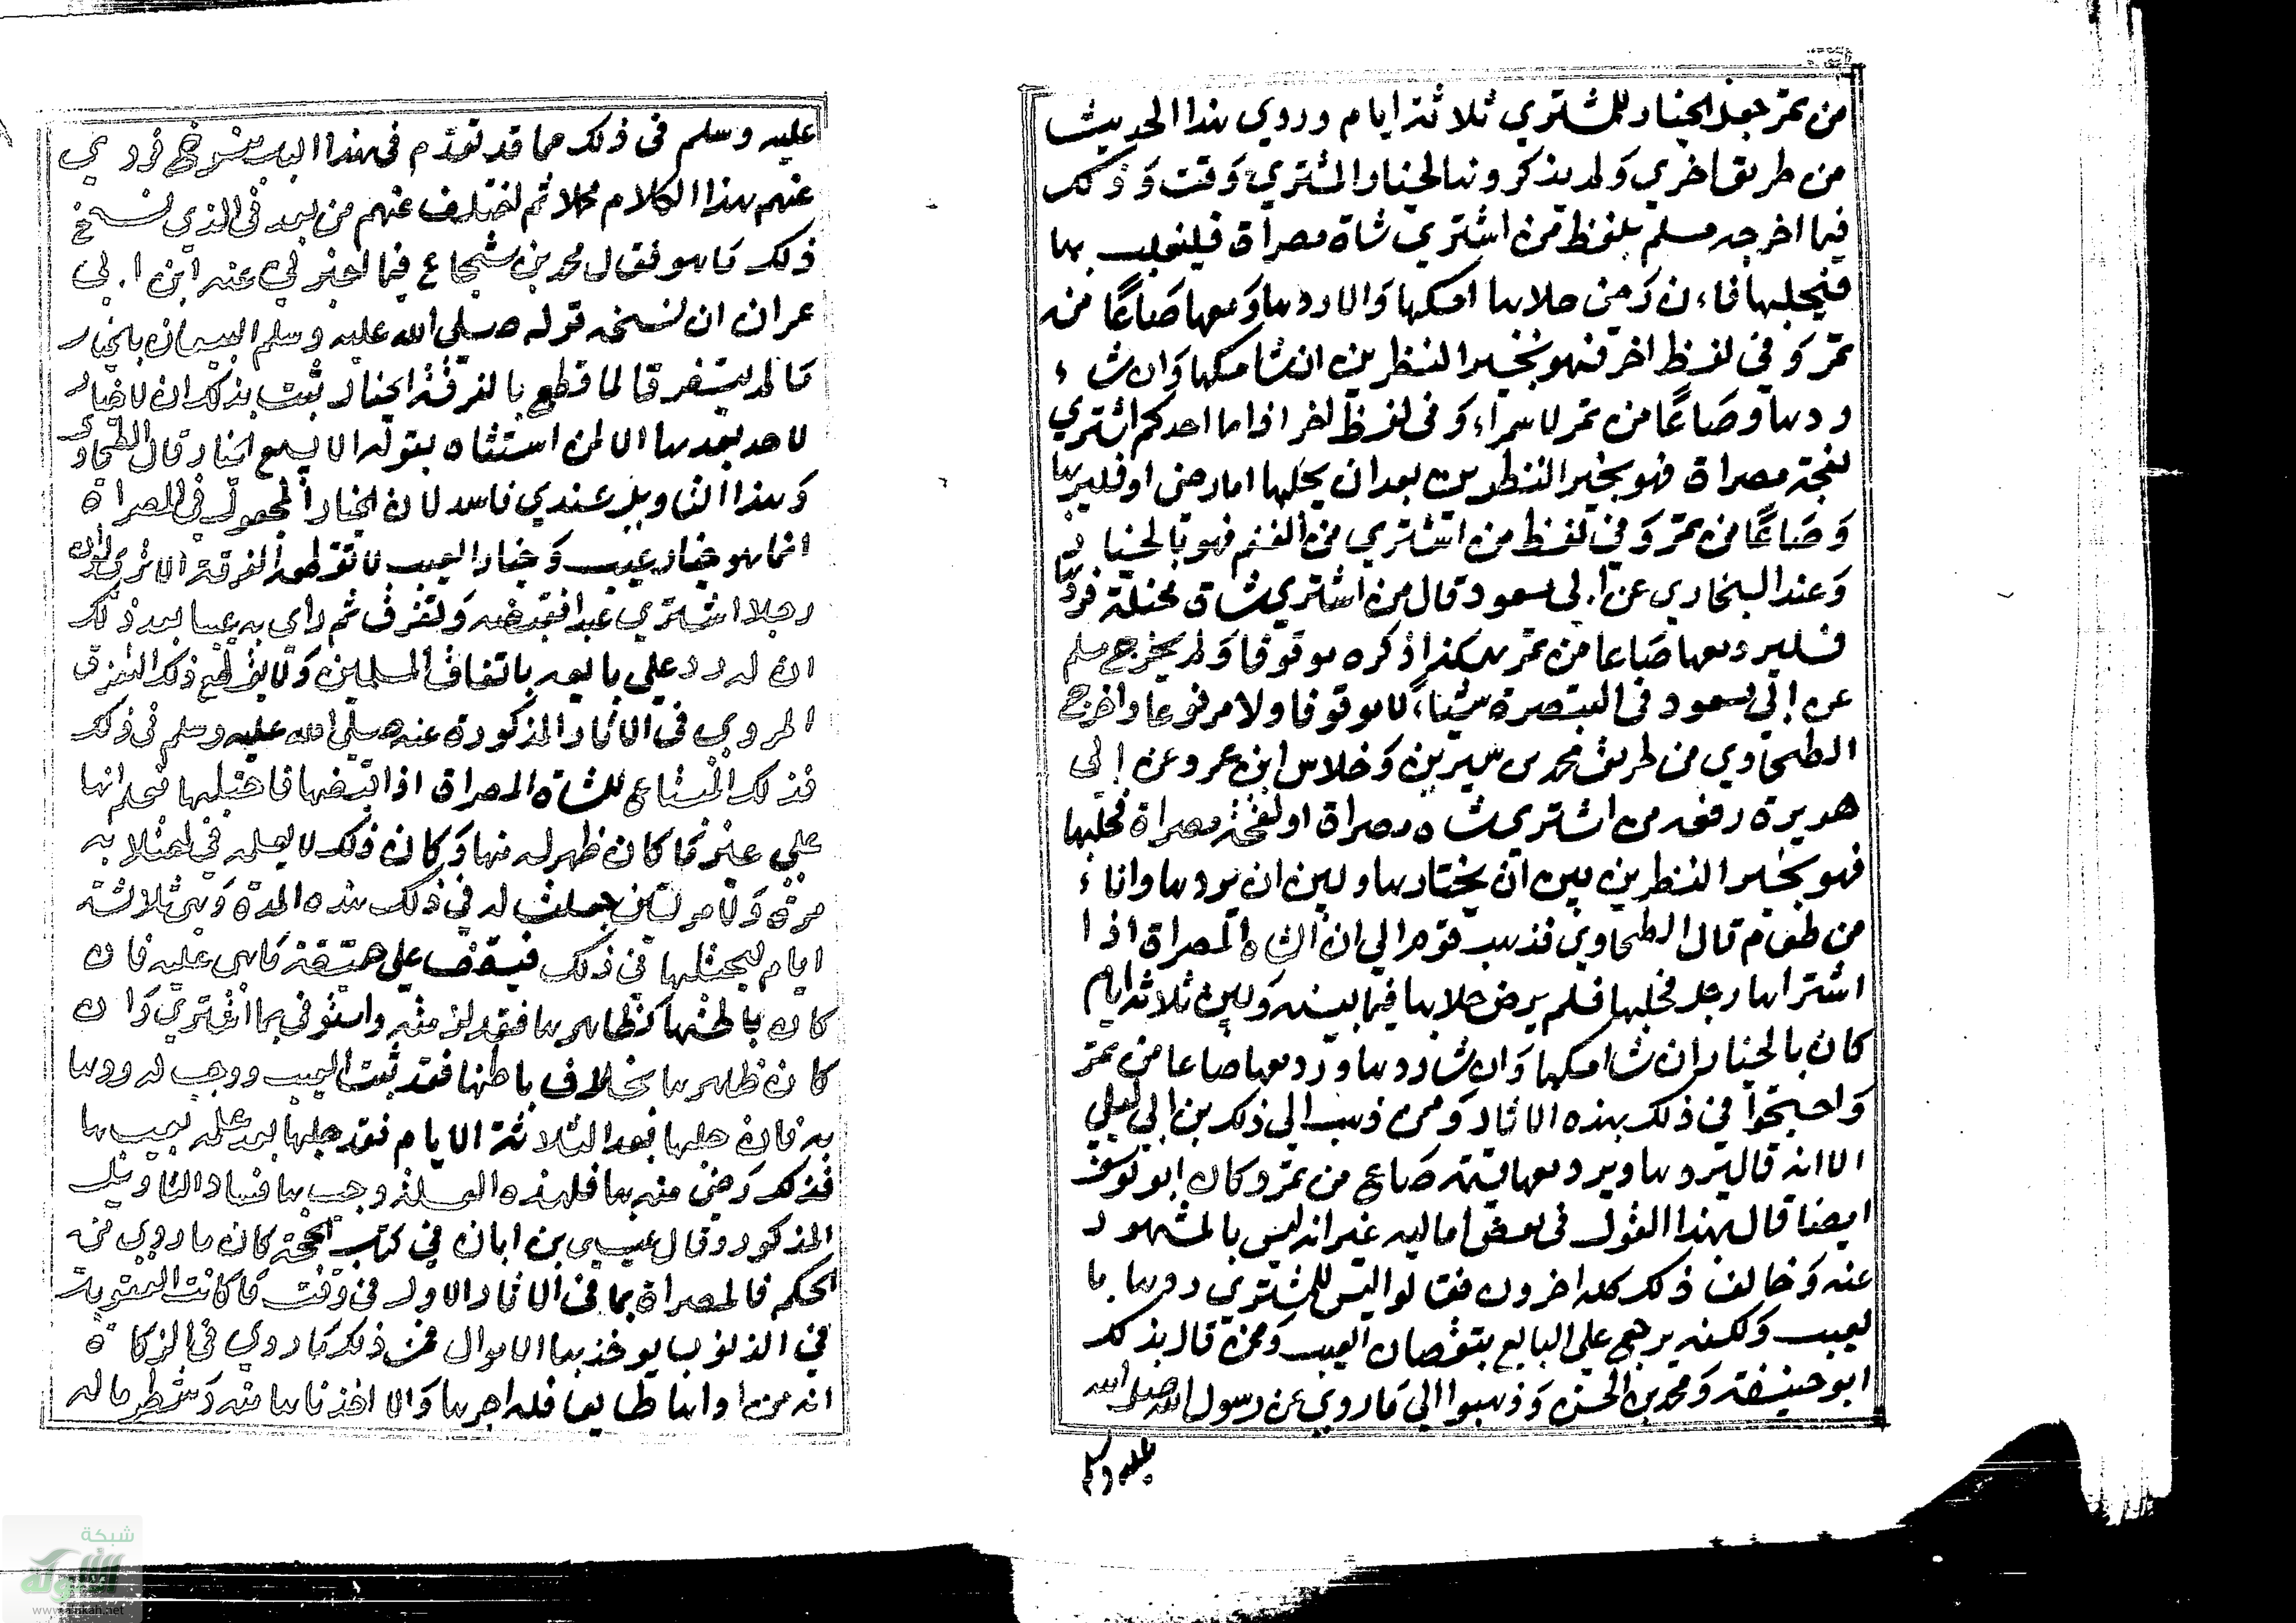 من تمر جعل الخيار للمشتري ثلاثة ايام وروي هذا الحديث
من طريق اخري ولم يذكر وفيها لخيار المشتري وقت وذلك
فيما اخرجه مسلم بلفظ من اشتري شاة مصراة فلينقلب بها
فيحلبها فان رضي حلابها امسكها والا ردها ومعها صاعا من
تمر وفي لفظ اخر فهو بخير النظرين ان شا امسكها وان شاء
ردها وصاعا من تمر لا سمراء وفي لفظ اخر اذا ما احدكم اشتري
لقحة مصراة فهو بخير النظرين بعد ان يحلبها اما رضي او فليردها
وصاعا من تمر وفي لفظ من اشتري من الغنم فهو بالخيار
وعند البخاري عن ابي مسعود قال من اشتري شاة محفلة فردها
فليرد معها صاعا من تمر هكذا ذكره موقوفا ولم يخرج مسلم
عن ابي مسعود في التصرة شيئا لا موقوفا ولا مرفوعا واخرج
الطحاوي من طريق محمد بن سيرين وخلاس ابن عمرو عن ابي
هريرة رفعه من اشتري شاه مصراة او لقحة مصراة فحلبها
فهو بخير النظرين بين ان يختارها وبين ان يردها واناء
من طعام قال الطحاوي فذهب قوم الي ان الشاه المصراة اذا
اشتراها رجل فحلبها فلم يرض حلابها فيما بينه وبين ثلاثة ايام
كان بالخيار ان شا امسكها وان شا ردها ورد معها صاعا من تمر
واحتجوا في ذلك بهذه الاثار وممن ذهب الي ذلك بن ابي ليلي
الا انه قال يردها ويرد معها قيمة صاع من تمر وكان ابو يوسف
ايضا قال بهذا القول في بعض اماليه غير انه ليس بالمشهور
عنه وخالف ذلك كله اخرون فقالوا ليس للمشتري ردها با
لعيب ولكنه يرجع علي البايع بنقصان العيب وممن قال بذلك
ابو حنيفة ومحمد بن الحسن وذهبوا الي ما روي عن رسول الله صلي الله
عليه وسلم
عليه وسلم في ذلك مما قد تقدم في هذا الباب منسوخ فروي
عنهم هذا الكلام مجملا ثم اختلف عنهم من بعد في الذي نسخ
ذلك ما هو فقال محمد بن شجاع فيما اخبرني عنه ابن ابي
عمران ان نسخه قوله صلي الله عليه وسلم البيعان بالخيار
ما لم يتفرقا لما قطع بالفرقة الخيار ثبت بذلك ان لا خيار
لاحد بعدها الا لمن استثناه بقوله الا بيع الخيار قال الطحاوي
وهذا التاويل عندي فاسد لان الخيار المجعول في المصراة
انما هو خيار عيب وخيار العيب لا تقطعه الفرقة الا تري لو ان
رجلا اشتري عبدا فقبضه وتفرق ثم راي به عيبا بعد ذلك
ان له رده علي بايعه باتفاق المسلمين ولا يقطع ذلك التفرق
المروي في الاثار المذكورة عنه صلي الله عليه وسلم في ذلك
فذلك المبتاع للشاه المصراة اذا قبضها فاحتلبها فعلم انها
علي غير ما كان ظهر له منها وكان ذلك لا يعلمه في احتلابه
مرة ولا مرتين جعلت له في ذلك هذه المدة وهي ثلاثة
ايام ليحتلبها في ذلك فيقف علي حقيقة ما هي عليه فان
كان باطنها كظاهرها فقد لزمته واستوفي بما اشتري وان
كان ظاهرها بخلاف باطنها فقد ثبت العيب ووجب له ردها
به فان حلبها بعد الثلاثة الايام فقد حلبها بعد علمه بعيبها
فذلك رضي منه بها فلهذه العلة وجب بها فساد التاويل
المذكور وقال عيسي بن ابان في كتاب الحجة كان ما روي من
الحكم في المصراة بما في الاثار الاول في وقت ما كانت العقوبات
في الذنوب يوخذ بها الاموال فمن ذلك ما روي في الزكاة
انه من اداها طايعا فله اجرها والا اخذناها منه وشطر ماله
شبكة
الألوكة
www.alukah.net